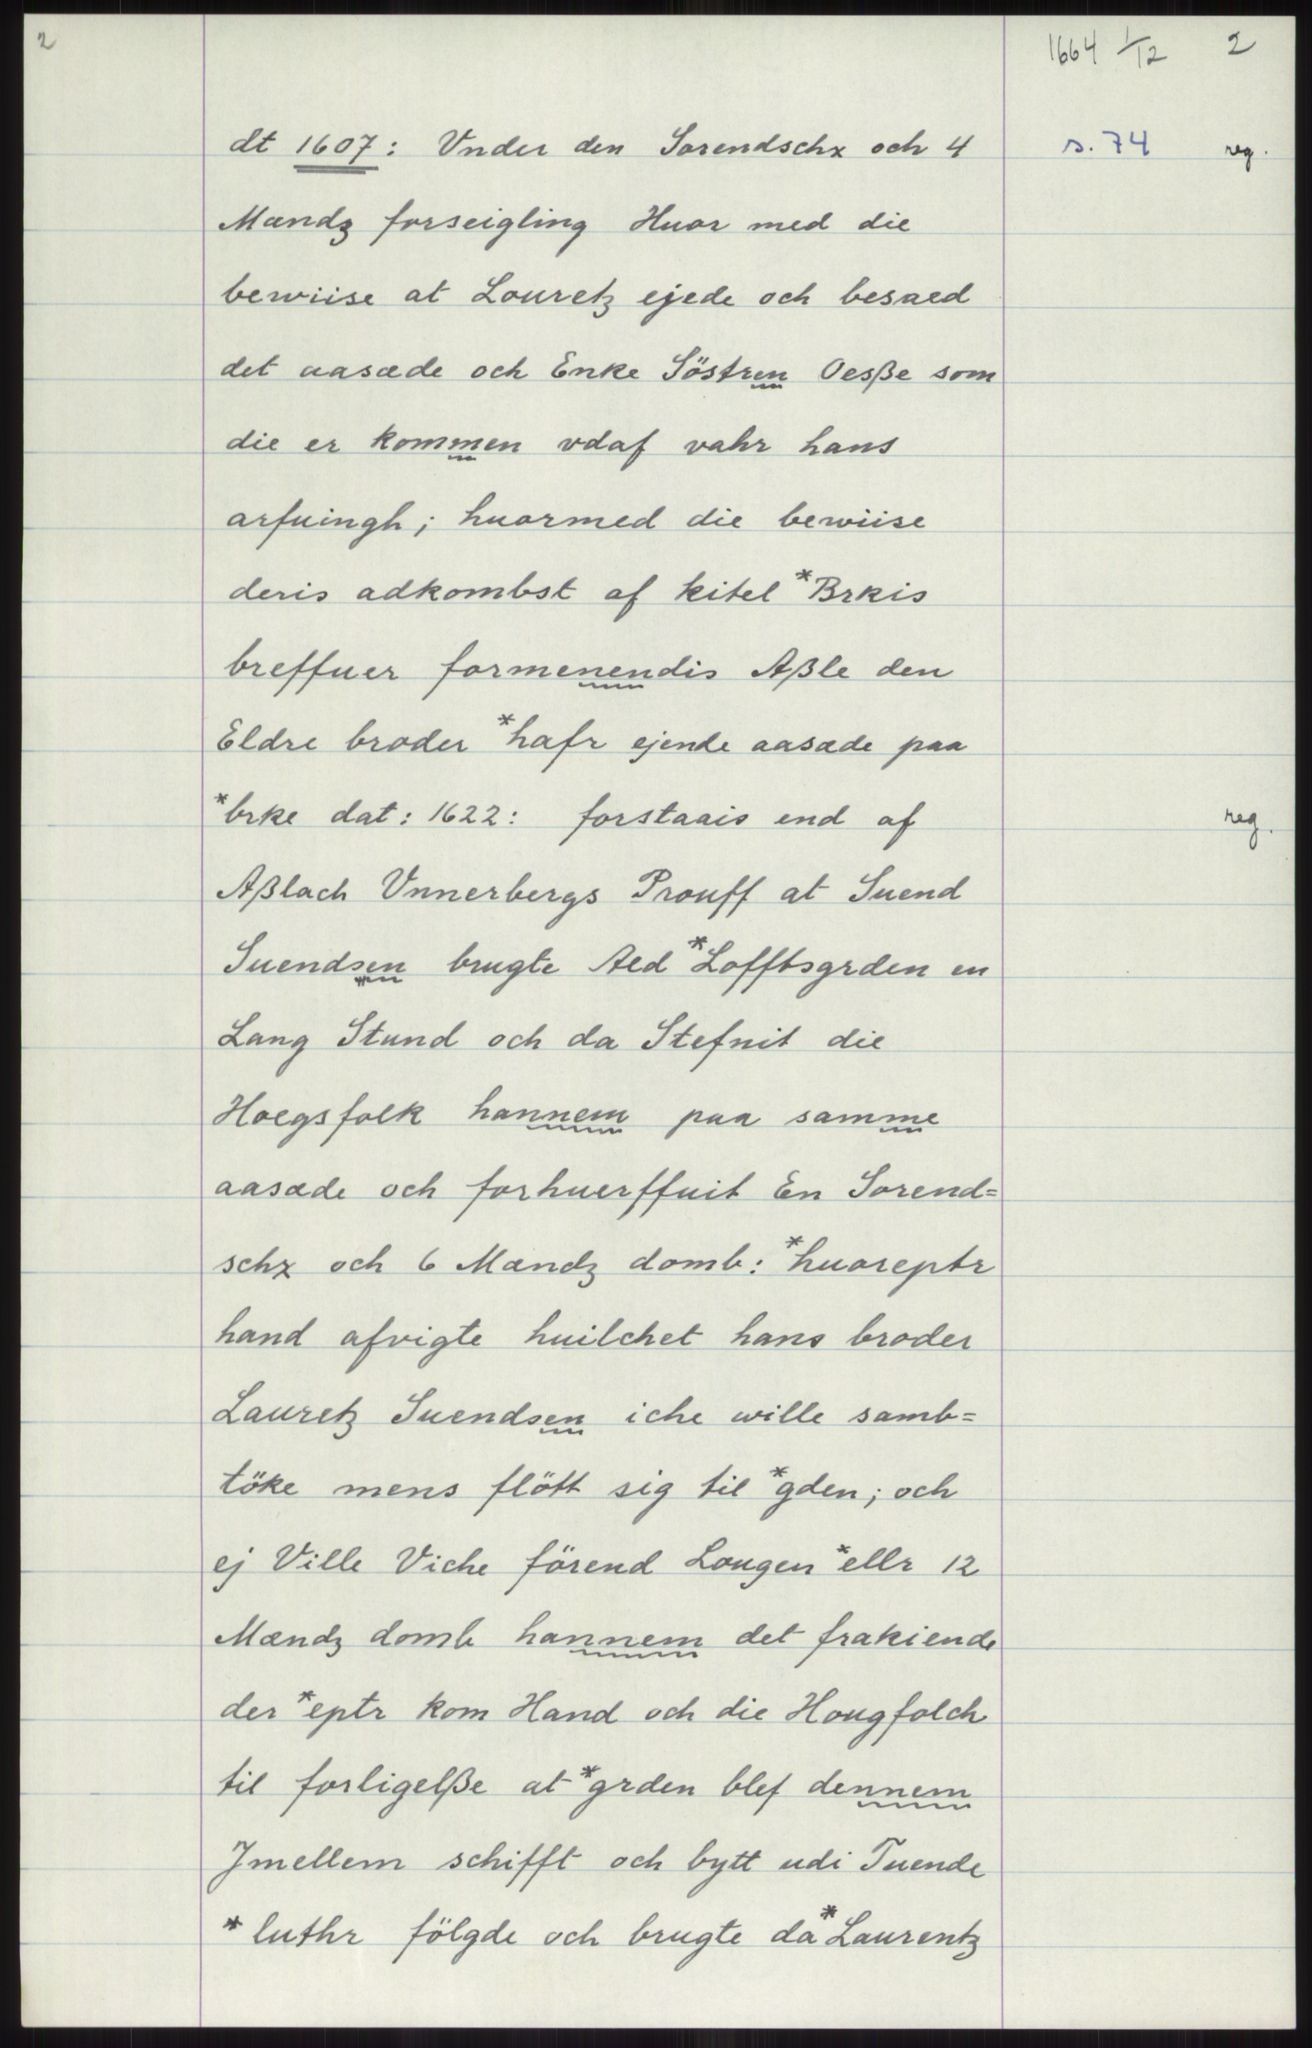 2
1664 1/12 2
dt 1607: Vnder den Sorendschx och 4 s. 74 reg.
Mændz forseigling Huor med die
bewiise at Louretz ejede och besaed
det aasæde och Enke Söstren Oesße som
die er kommen vdaf vahr hans
arfuingh; huormed die bewiise
deris adkombst af kitel *Brkis
breffuer formenendis Aßle den
Eldre broder *hafr ejende aasæde paa
*brke dat: 1622: forstaais end af reg.
Aßlach Vnnerbergs Prouff at Suend
Suendsen brugte Aed *Lofftsgrden en
Lang Stund och da Stefnit die
Hoegsfolk hannem paa samme
aasæde och forhuerffuit En Sorend=
schx och 6 Mændz domb: *huoreptr
hand afvigte huilchet hans broder
Lauretz Suendsen iche wille samb=
töke mens flött sig til *gden; och
ej Ville Viche förend Lougen *ellr 12
Mændz domb hannem det frakiende
der *eptr kom Hand och die Hougfolch
til forligelße at *grden blef dennem
Jmellem schifft och bytt udi Tuende
*luthr fölgde och brugte da *Laurentz